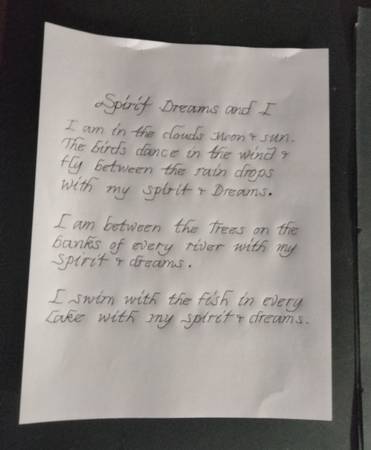 Spirit Dreams and I
I am in the clouds moon & sun.
The birds dance in the wind &
fly between the rain drops
with my spirit & Dreams.
I am between the Trees on the
banks of every river with my
spirit & dreams.
I swim with the fish in every
Lake with my spirit & dreams.